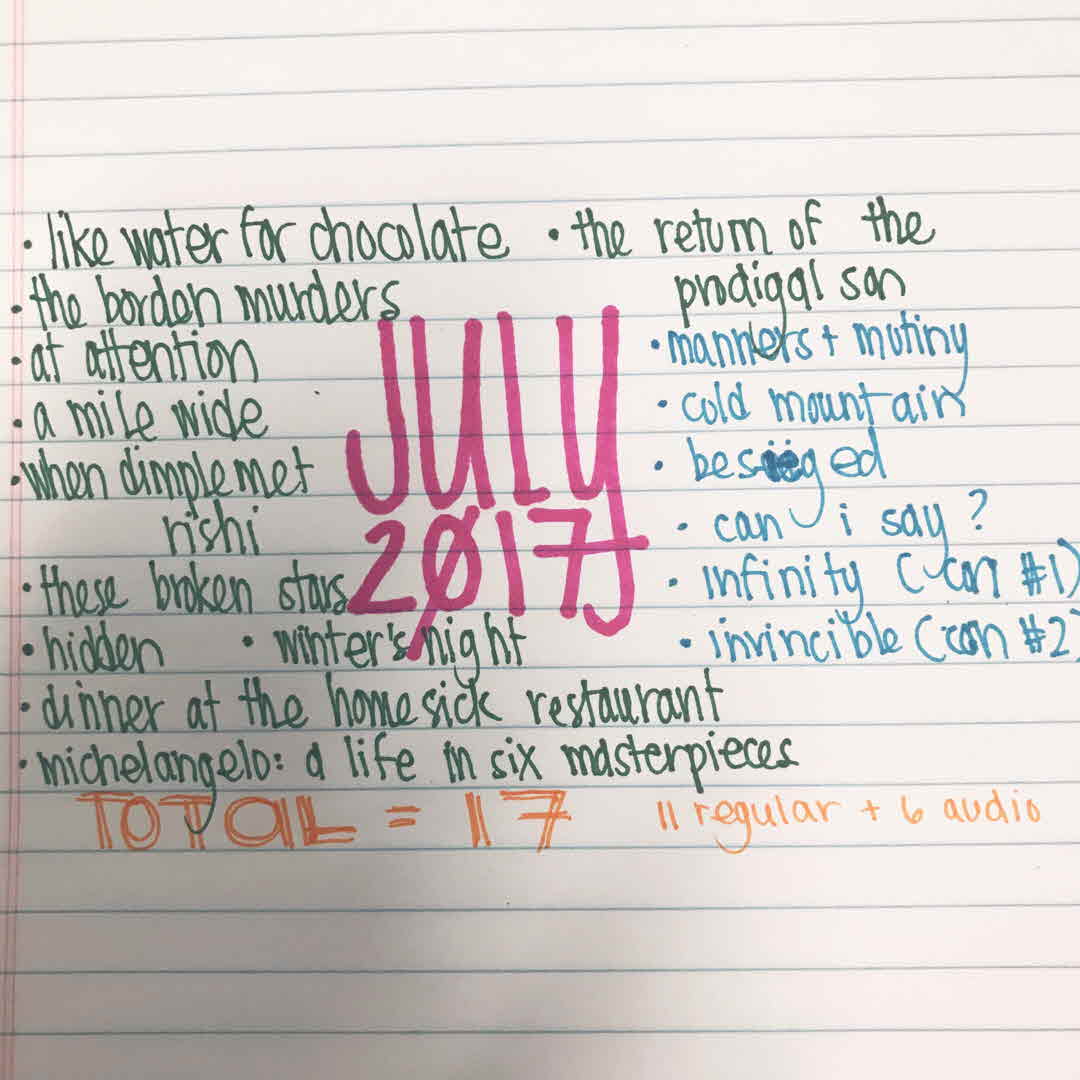 • like water for chocolate
• the borden murders
• at attention
• a mile wide
• when dimple met
rishi
• these broken stars
• hidden • winter's night
• dinner at the homesick restaurant
• michelangelo: a life in six masterpieces
JULY
2017
• the return of the
prodigal son
• manners + mutiny
• cold mountain
• besieged
• can i say?
• infinity (con #1)
• invincible (con #2)
TOTAL = 17 11 regular + 6 audio